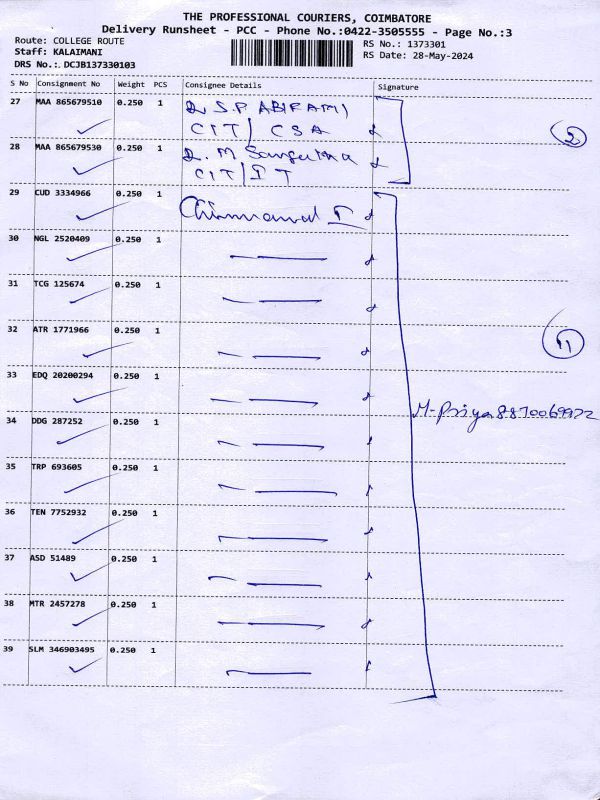 THE PROFESSIONAL COURIERS, COIMBATORE
Delivery Runsheet - PCC - Phone No.:0422-3505555 - Page No.:3
Route: COLLEGE ROUTE
Staff: KALAIMANI
DRS No.: DCJB137330103
RS No.: 1373301
RS Date: 28-May-2024
S No Consignment No Weight PCS Consignee Details Signature
27 MAA 865679510 0.250 1 S.P ABIRAMI
CIT/ CSA
2
28 MAA 865679530 0.250 1 M Sangeetha
CIT/IT
29 CUD 3334966 0.250 1
30 NGL 2520409 0.250 1
31 TCG 125674 0.250 1
32 ATR 1771966 0.250 1
11
33 EDQ 20200294 0.250 1
M-Priya 8870069972
34 DDG 287252 0.250 1
35 TRP 693605 0.250 1
36 TEN 7752932 0.250 1
37 ASD 51489 0.250 1
38 MTR 2457278 0.250 1
39 SLM 346903495 0.250 1